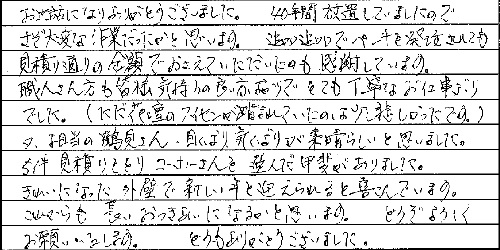 お世話になりありがとうございました。 40年間放置していましたので
さぞ大変な作業だったかと思います。 追加追加でペンキを発注されても
見積り通りの金額でおさえていただいたのも感謝しています。
職人さん方も皆様気持の良い方ばかりでとても丁寧なお仕事ぶり
でした。(ただ花壇のアイビーが踏まれていたのは少し悲しかったです。)
又、担当の鶴見さん、目くばり気くばりが素晴らしいと思いました。
5件見積りをとりコーナーさんを選んだ甲斐がありました。
きれいになった外壁で新しい年を迎えられると喜んでいます。
これからも長いおつきあいになるかと思います。 どうぞよろしく
お願いいたします。 どうもありがとうございました。